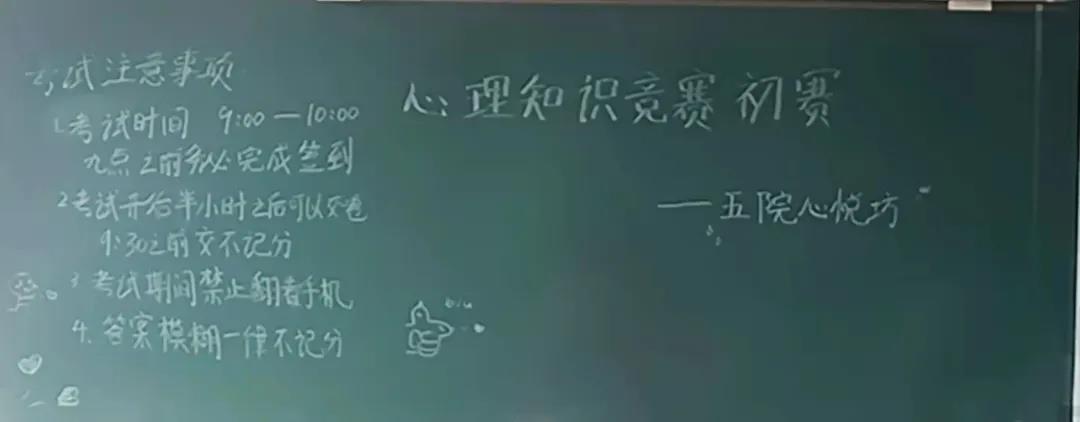 考试注意事项
1.考试时间 9:00—10:00
九点之前务必完成签到
2考试开始半小时之后可以交卷
9:30之前交不记分
3 考试期间禁止翻看手机
4. 答案模糊一律不记分
心理知识竞赛初赛
——五院心悦坊